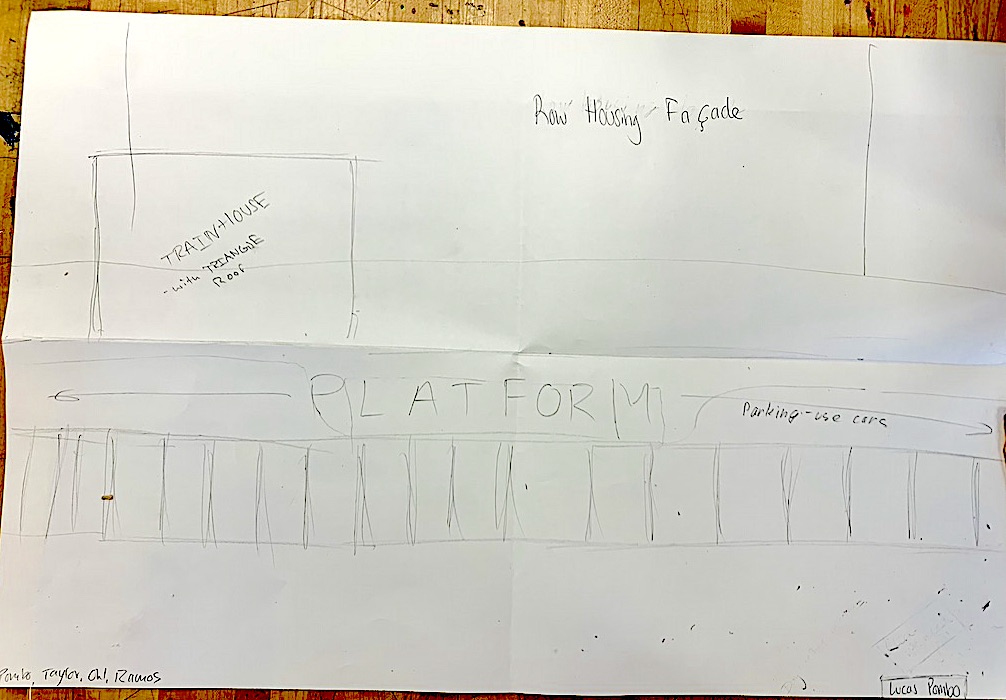 Row Housing Façade
TRAINHOUSE
-with TRIANGLE
ROOF
PLATFORM
Parking-use cars
Pombo, Taylor, Ohl, Ramos
Lucas Pombo